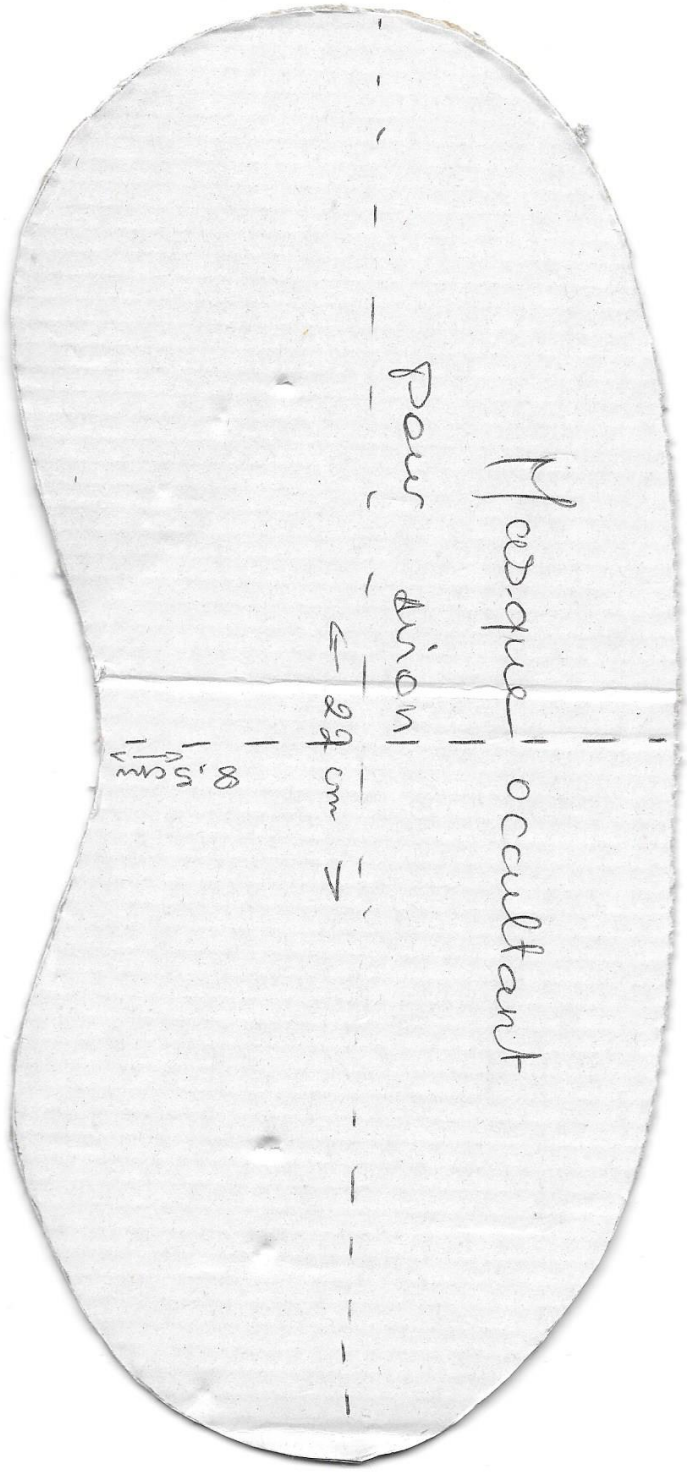 Masque occultant
Pour
← 22 cm →
8.5 cm